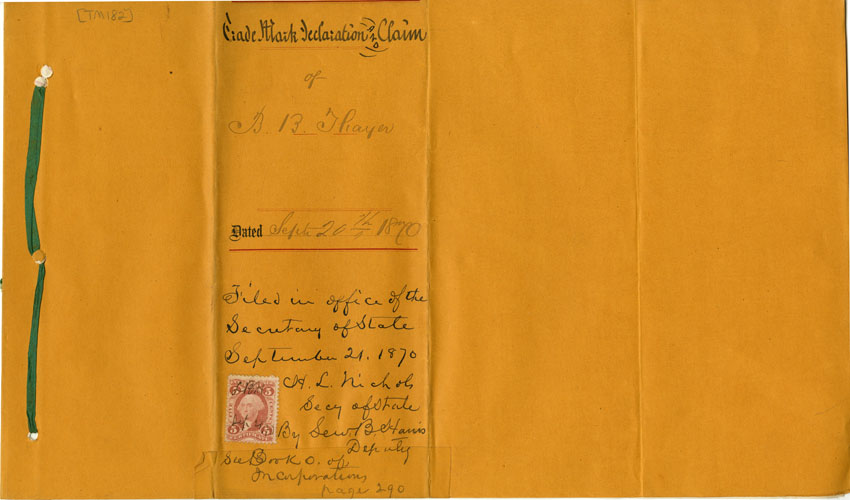 [TM182]
Trade Mark Declaration and Claim
of
B. B. Thayer
Dated Sept 20th 1870
Filed in office of the
Secretary of State
September 21. 1870
H. L. Nichols
Secy of State
By Lew. B. Harris
Deputy
See Book O. of
Incorporations
page 290
5 5